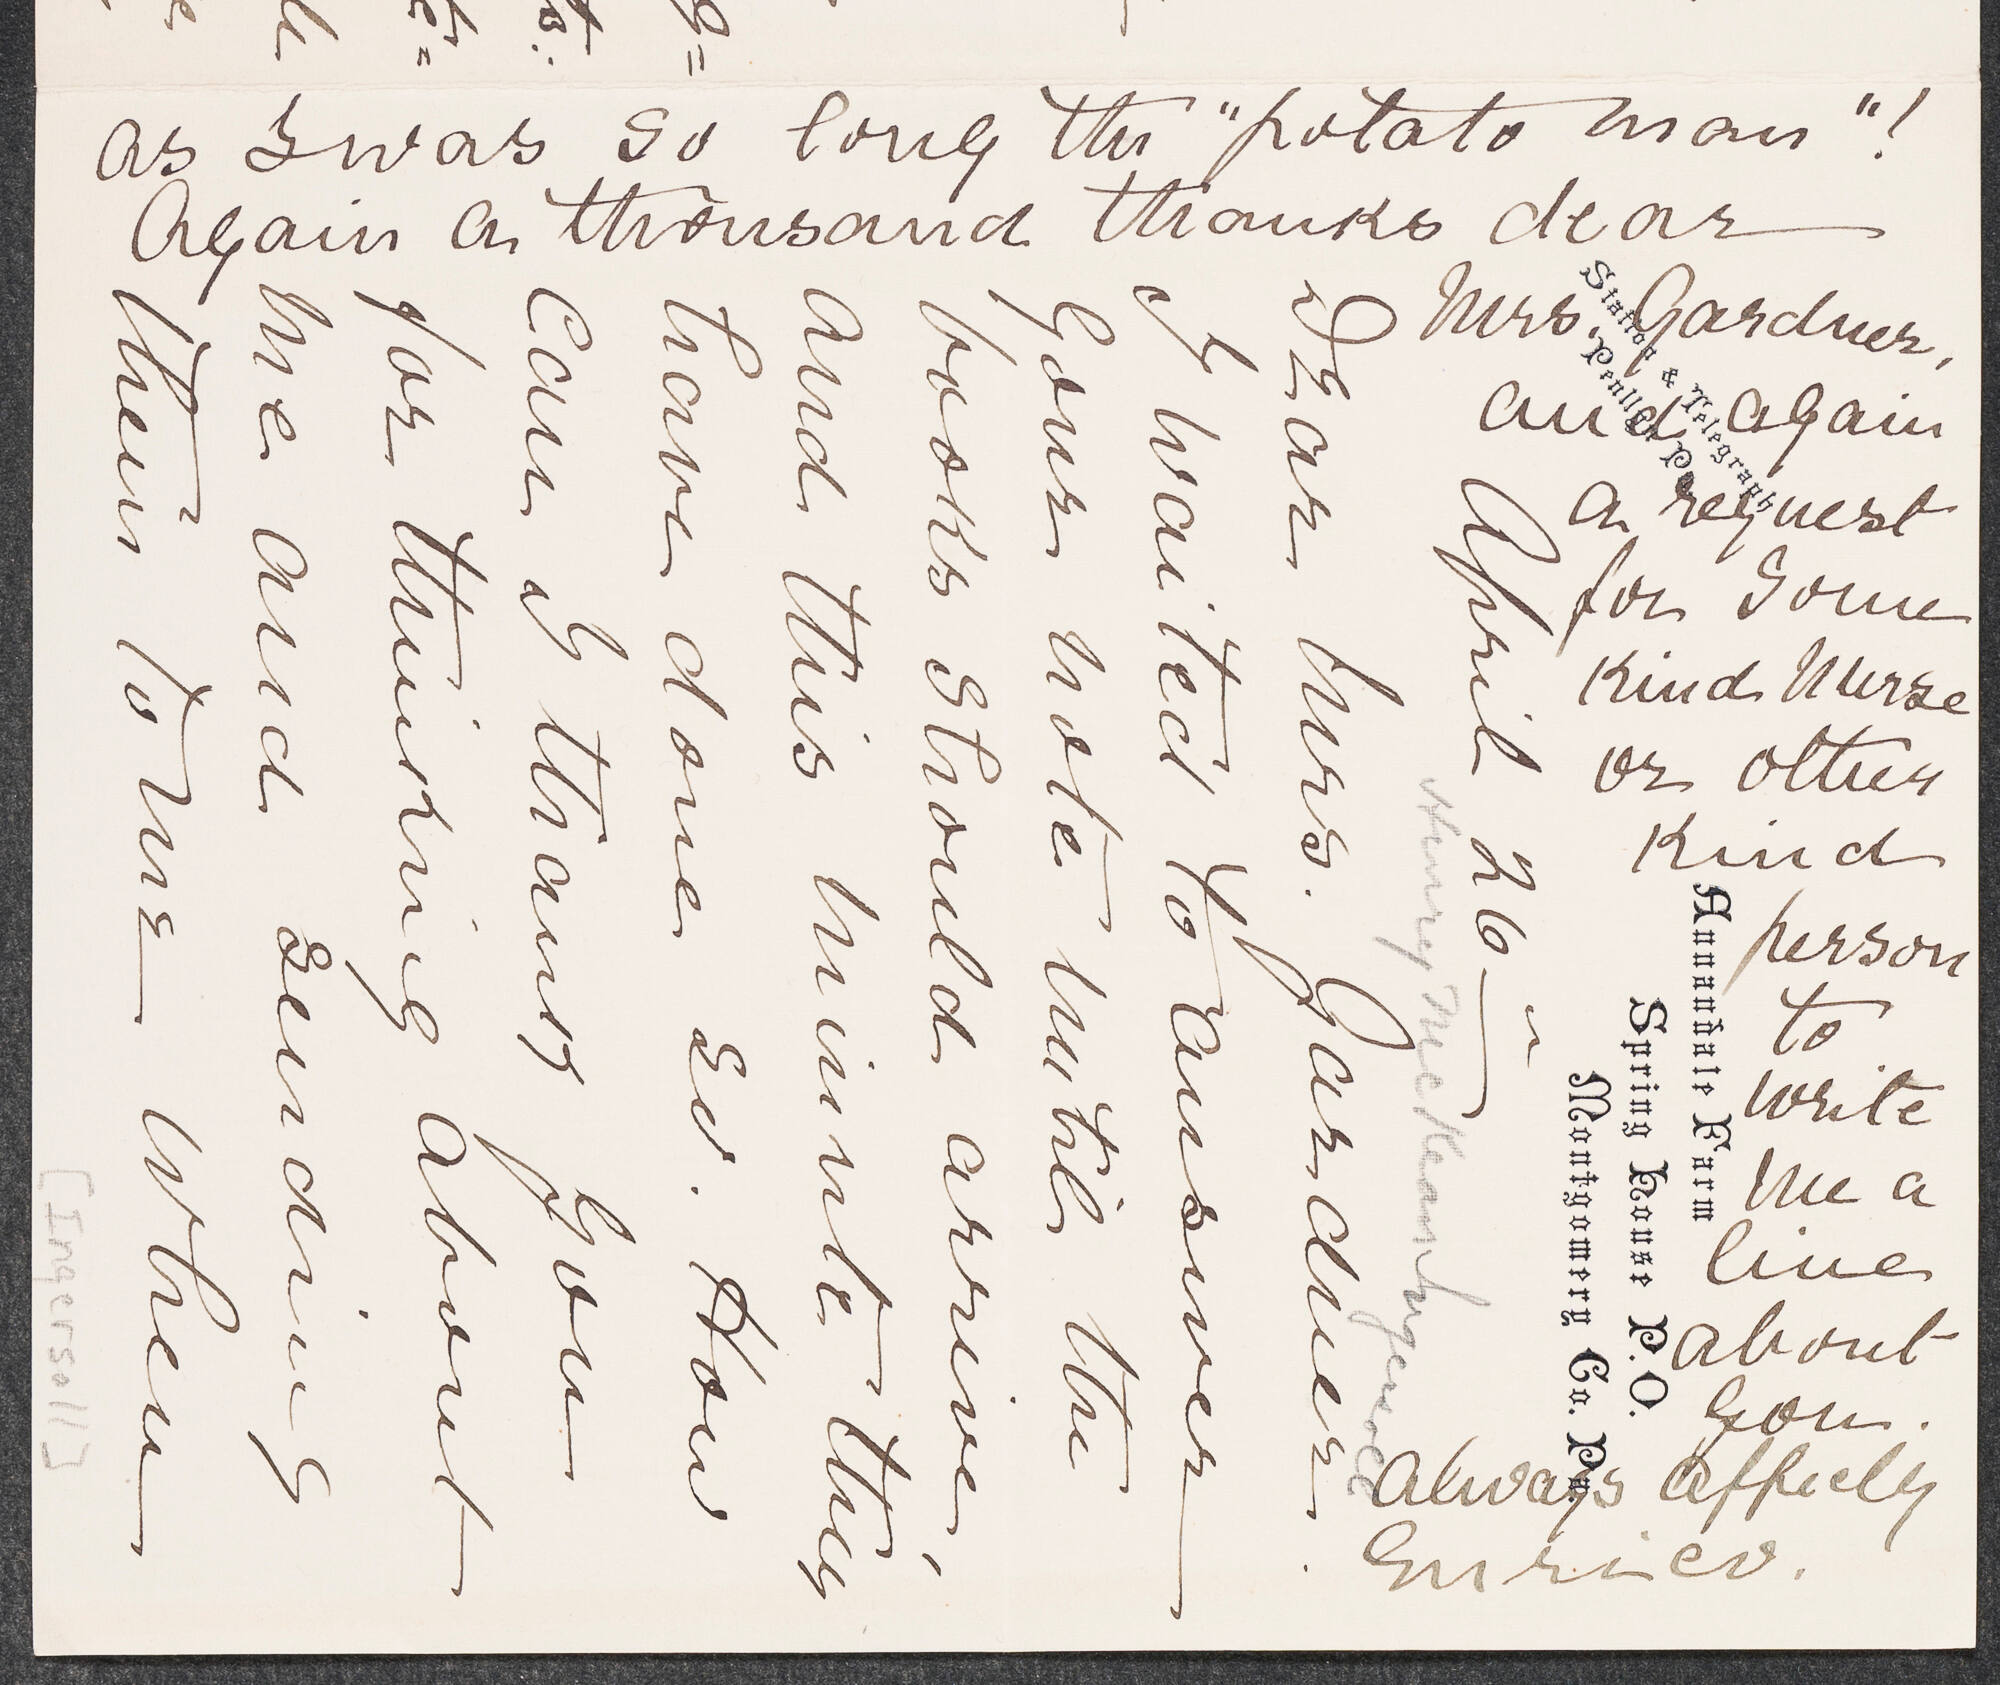 as I was so long the "potato man"!
Again a thousand thanks dear
Mrs. Gardner,
and again
a request
for some
kind Nurse
or other
kind
person
to
write
me a
line
about
you.
Always affecly
Enrico.
Station & Telegraph
Penllyn Pa.
Annandale Farm
Spring House P.O.
Montgomery Co. Pa.
April 26
Dear Mrs. Gardner.
I waited to answer
your note until the
books should arrive,
and this minute they
have done so. How
can I thank you
for thinking about
me and sending
them to me when
[Ingersoll]